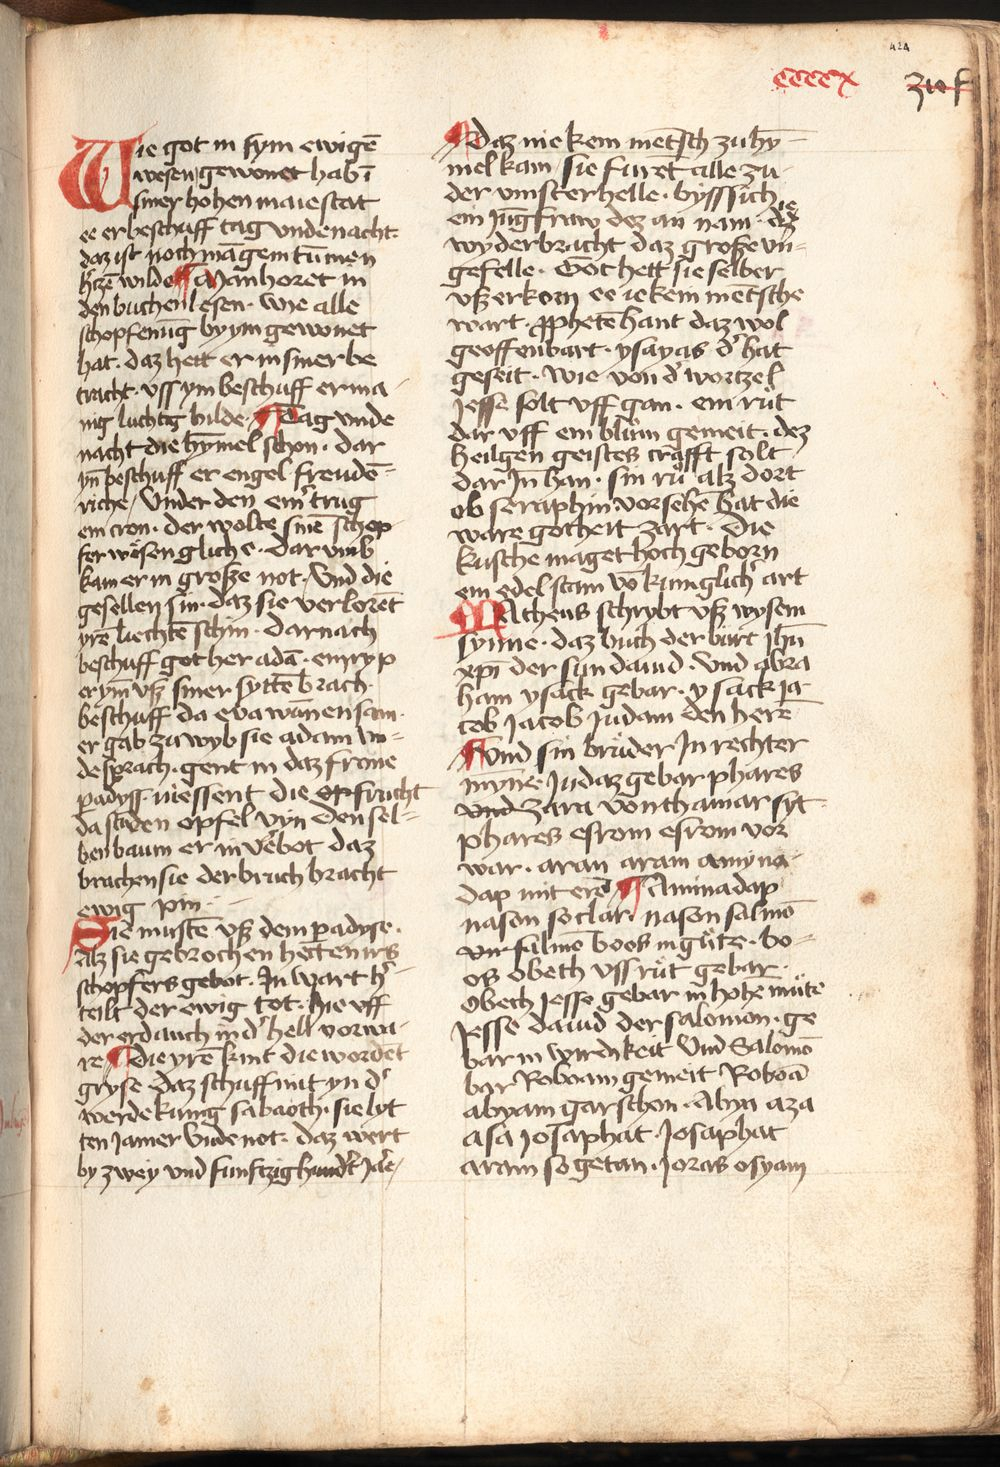 424
ccccx
Wie got in sym ewigē
wesen gewonet hab ī
siner hohen maiestat
ee er beschuff tag unde nacht.
daz ist noch māgem tūmen
h'tzē wilde Man horet in
den buchen lesen. wie alle
schopfenūg by ym gewonet
hat. daz hett er in siner be
tracht. uss ym beschuff er ma-
nig luchtig bilde. Tag unde
nacht die hȳmel schon. dar
yn beschuff er engel freudē-
riche / Under den ein' trug
ein cron. der wolte sinē schop
fer wesen glich e. dar umb
kam er in große not. Und die
gesellen sin. daz sie verlorēt
yre liechtē schin. darnach
beschuff got her adā. ein ryp
er ym uß siner syttē brach.
beschuff da eva wūnensam.
er gab zu wyb sie adam un-
de sprach. gent in daz frone
padyss. niessent die opfrucht
da stāden opfel vyn den sel-
ben baum er in v'ebot daz
brachen sie der bruch bracht
ewig pin.
Sie mustē uß dem padyse.
Alz sie gebrochen hettē irs
schopfers gebot. In wart h'-
teilt der ewig tot. hie uff
der erd auch in d' hell vorwa-
re die yrē kint die wordēt
gryse daz schuff mit yn d'
werde kunig sabaoth. sie lyt
ten iamer unde not. daz wert
by zwey und funftzig hund't Jare /
daz nie kein mētsch zu hȳ-
mel kam. sie furēt alle zu-
der vinster helle. byss sich
ein jūgfraw dez an nam. die
wyder bracht daz große un-
gefelle. Got hett sie selber
uß erkorn ee ie kein mētsche
wart. pphetē hant daz wol
geoffenbart. ysayas d' hat
geseit. wie von d' wortzel
Jesse solt uff gan. ein rut
dar uff ein blum gemeit. dez
heilgen geistes crafft solt
dar Jn han. sin ru alz dort
ob seraphin. vorsehē hat die
ware gotheit zart. die
kusche maget hoch geborn
ein edel stam vō kunglich' art
Matheus schrybt uß wysem
synne. daz buch der burt ihū
xpī der sun david. Und abra
ham ysack gebar. ysack ja-
cob Jacob Judam den herē
Und sin bruder Jn rechter
mȳne. Judaz gebar phares
und zara von thamar syt
phares esrom esrom vor
war. aran aram amyna-
dap mit erē Aminadap
nason so clar. nason salmō
salmō boos in gute. bo-
os obeth uss rut gebar.
Obech Jesse gebar in hohē mute
Jesse david der salomon. ge
bar in wirdikeit Und Salomō
bar Roboam gemeit Roboā
abyam gar schon. Abyn aza
asa Josaphat. Josaphat
aram so getan. Joras osyam